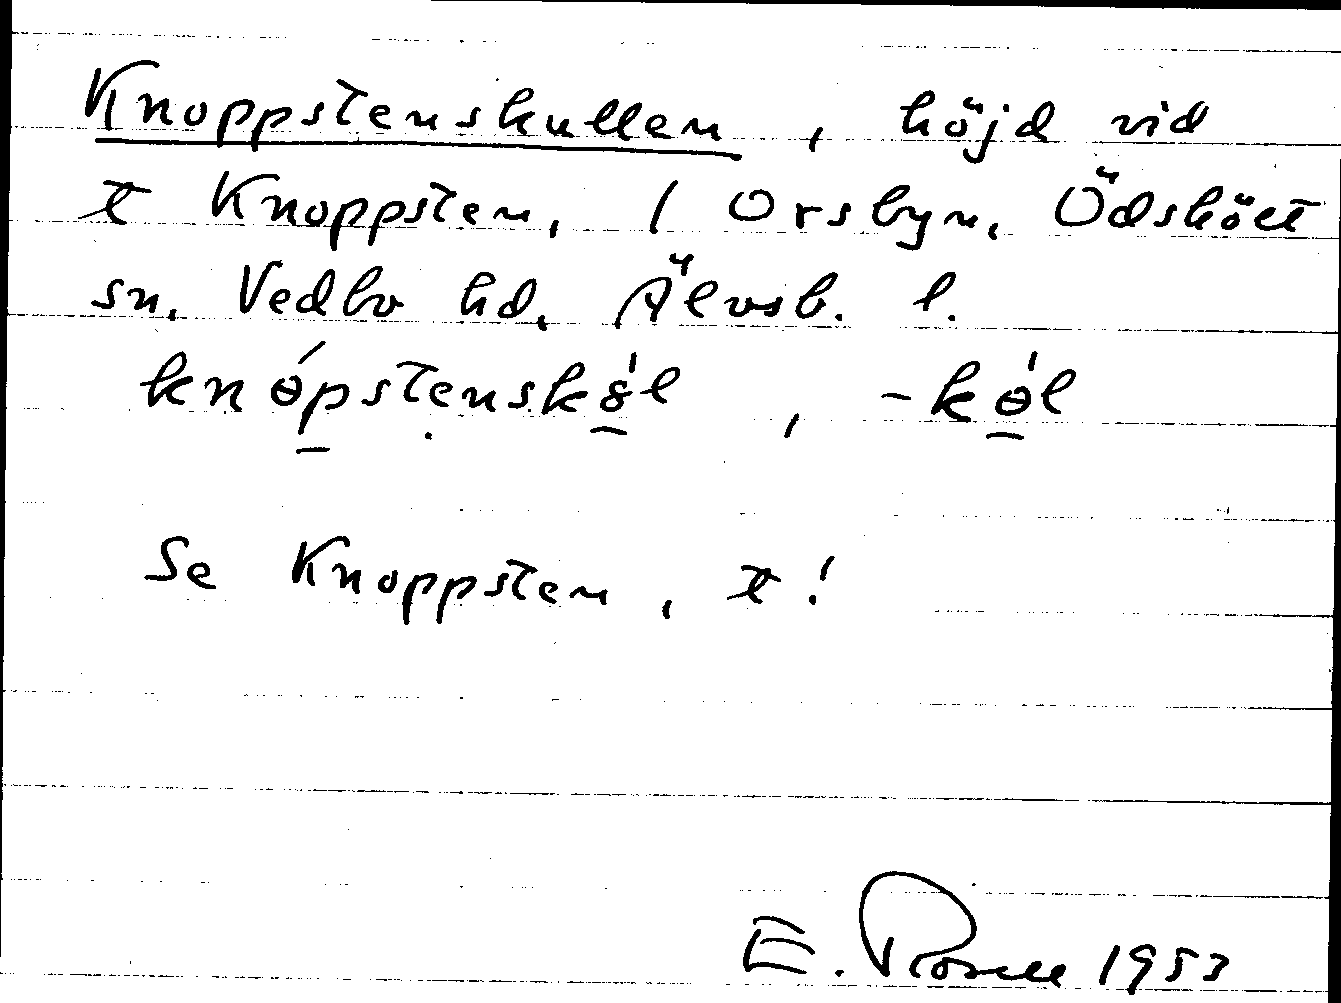 Knoppstenskullen, höjd vid
t Knoppsten, 1 Orsbyn, Ödskölt
sn, Vedbo hd, Älvsb. l.
knɵ́pstenskȣ̍l, -kɵ̍l
Se Knoppsten, t!
E. Rosell 1953